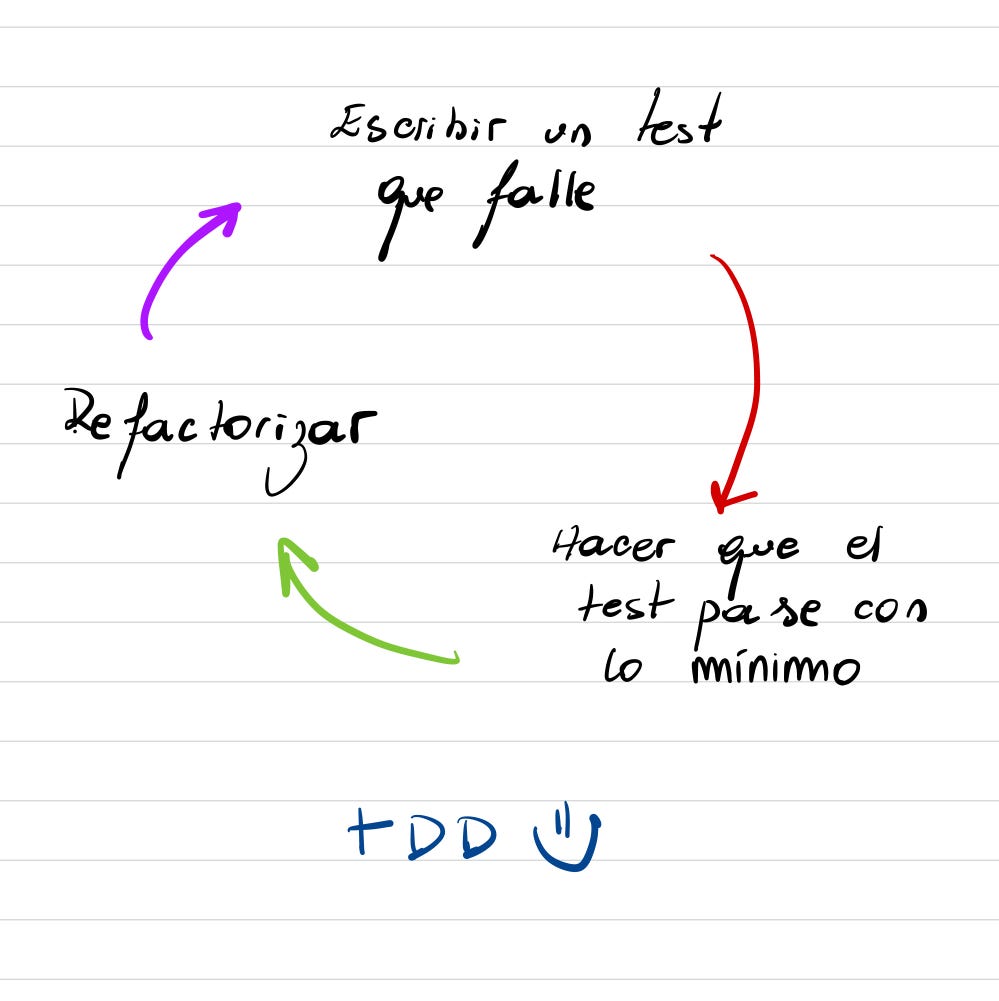 Escribir un test
que falle
Refactorizar
Hacer que el
test pase con
lo mínimo
TDD